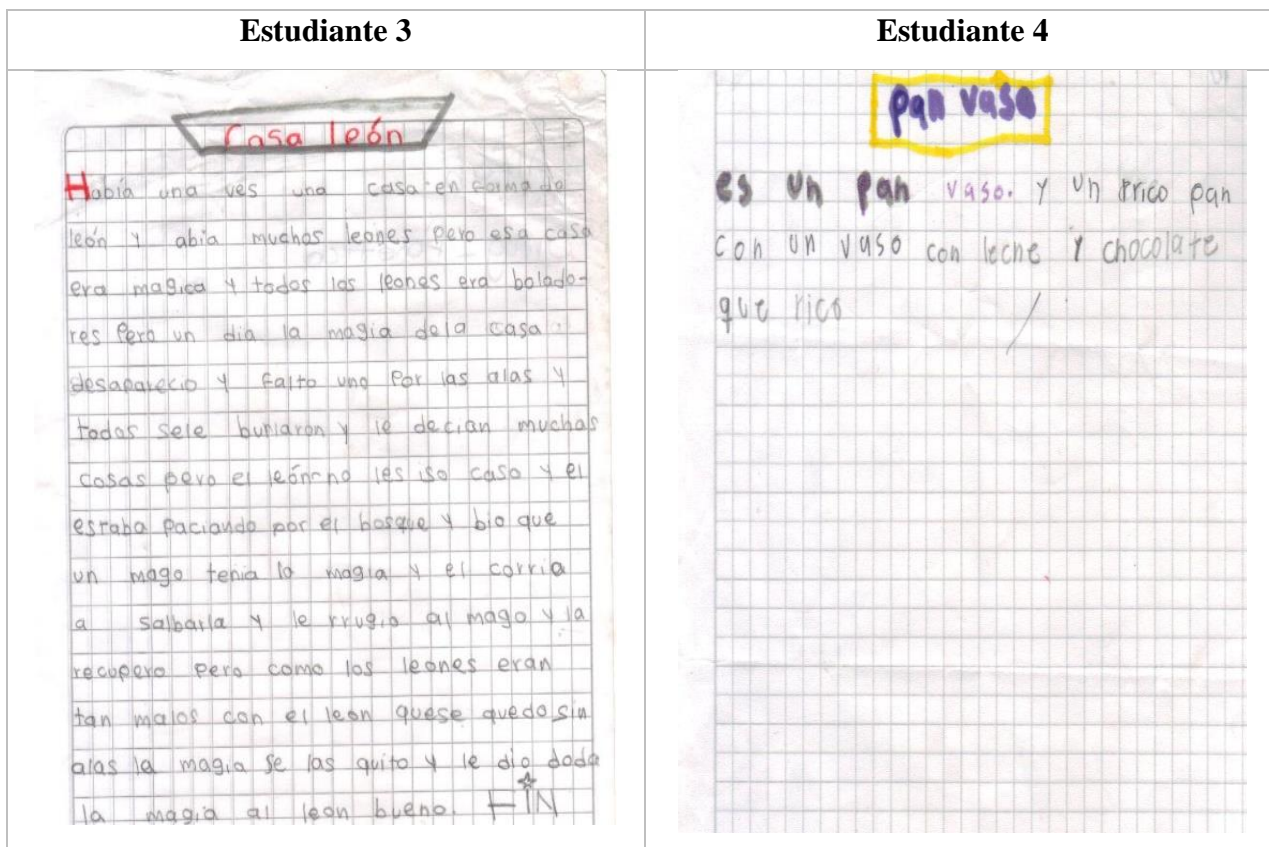 Estudiante 3
Casa león
Había una ves una casa en forma de
león y abia muchos leones pero esa casa
era magica y todos los leones era bolado-
res pero un dia la magia dela casa
desaparecio y falto uno por las alas y
todos sele burlaron y le decian muchas
cosas pero el león no les iso caso y el
estaba paciando por el bosque y bio que
un mago tenia la magia y el corria
a salbarla y le rrugio al mago y la
recupero pero como los leones eran
tan malos con el leon quese quedo sin
alas la magia se las quito y le dio doda
la magia al leon bueno. FiN
Estudiante 4
pan vaso
es un pan vaso. y un rrico pan
con un vaso con leche y chocolate
que rico